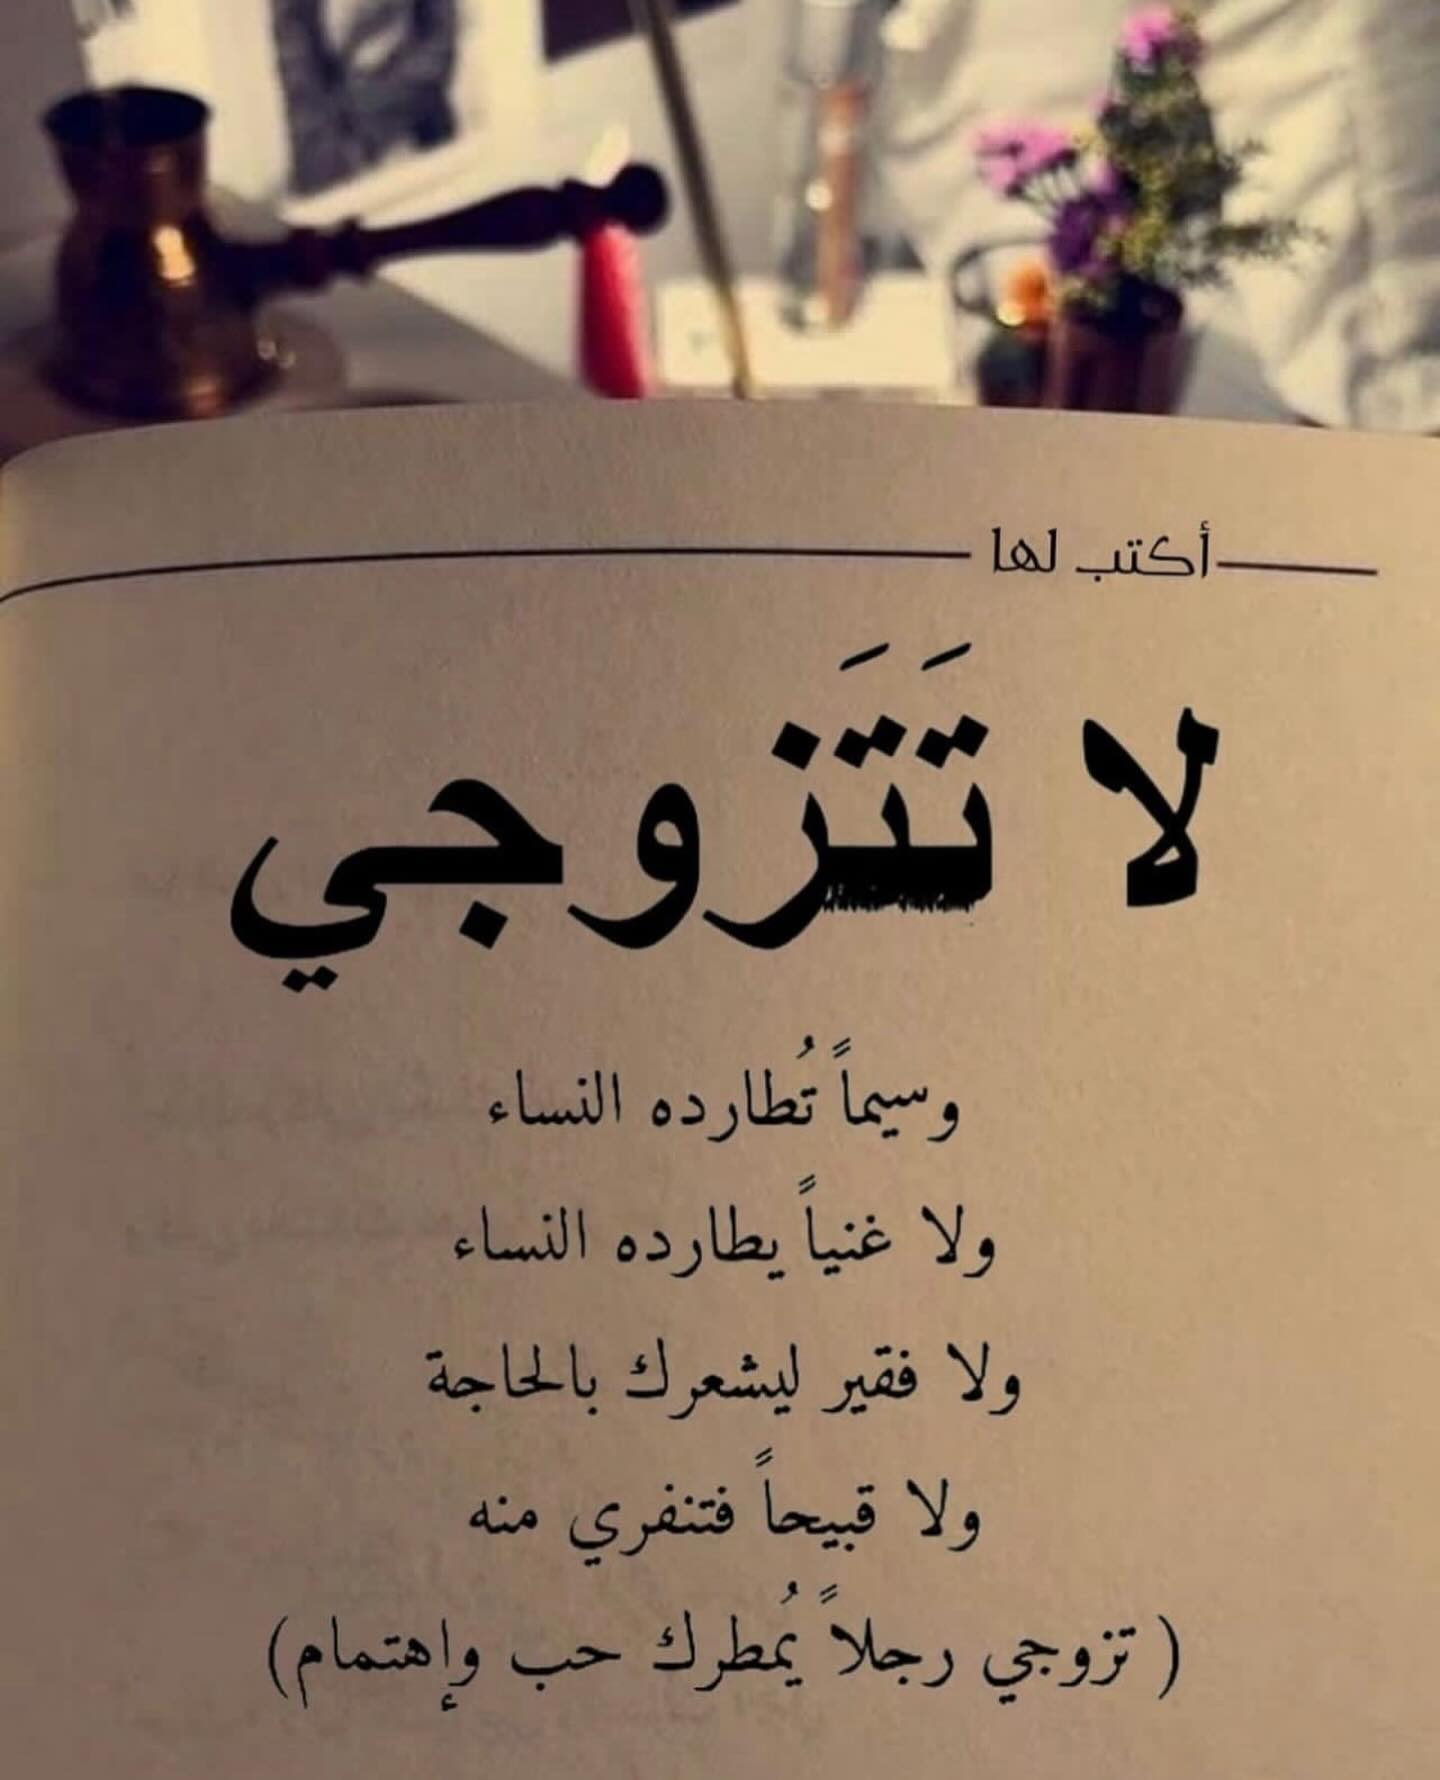 أكتب لها
لا تَتَزوجي
وسيماً تُطارده النساء
ولا غنياً يطارده النساء
ولا فقير ليشعرك بالحاجة
ولا قبيحاً فتنفري منه
( تزوجي رجلاً يُمطرك حب وإهتمام)